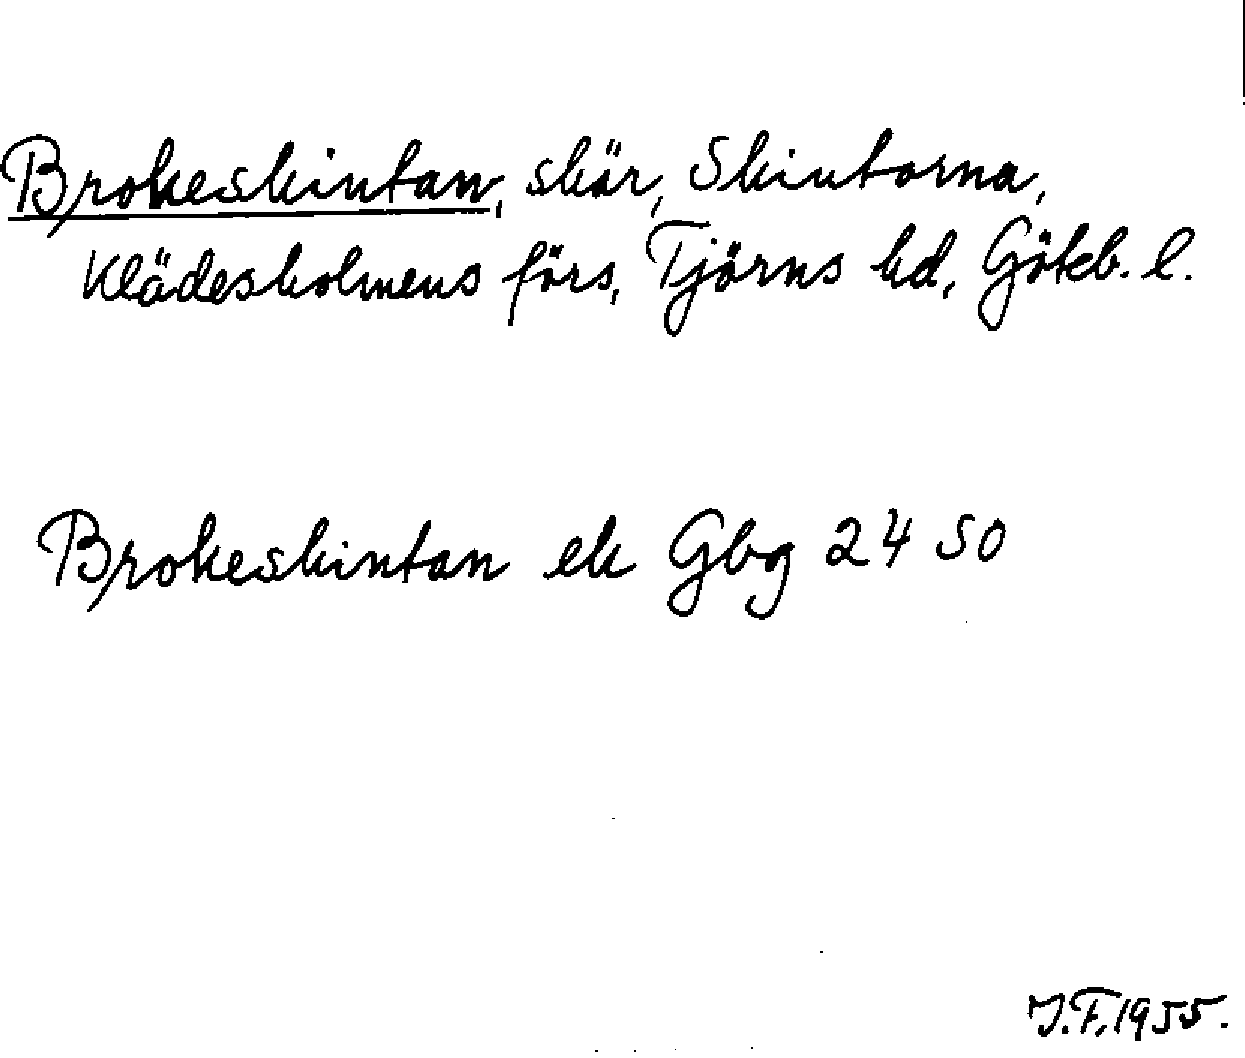 Brokeskintan, skär, Skintorna,
Klädesholmens förs, Tjörns hd, Göteb. l.
Brokeskintan ek Gbg 24 50
J.F. 1955.